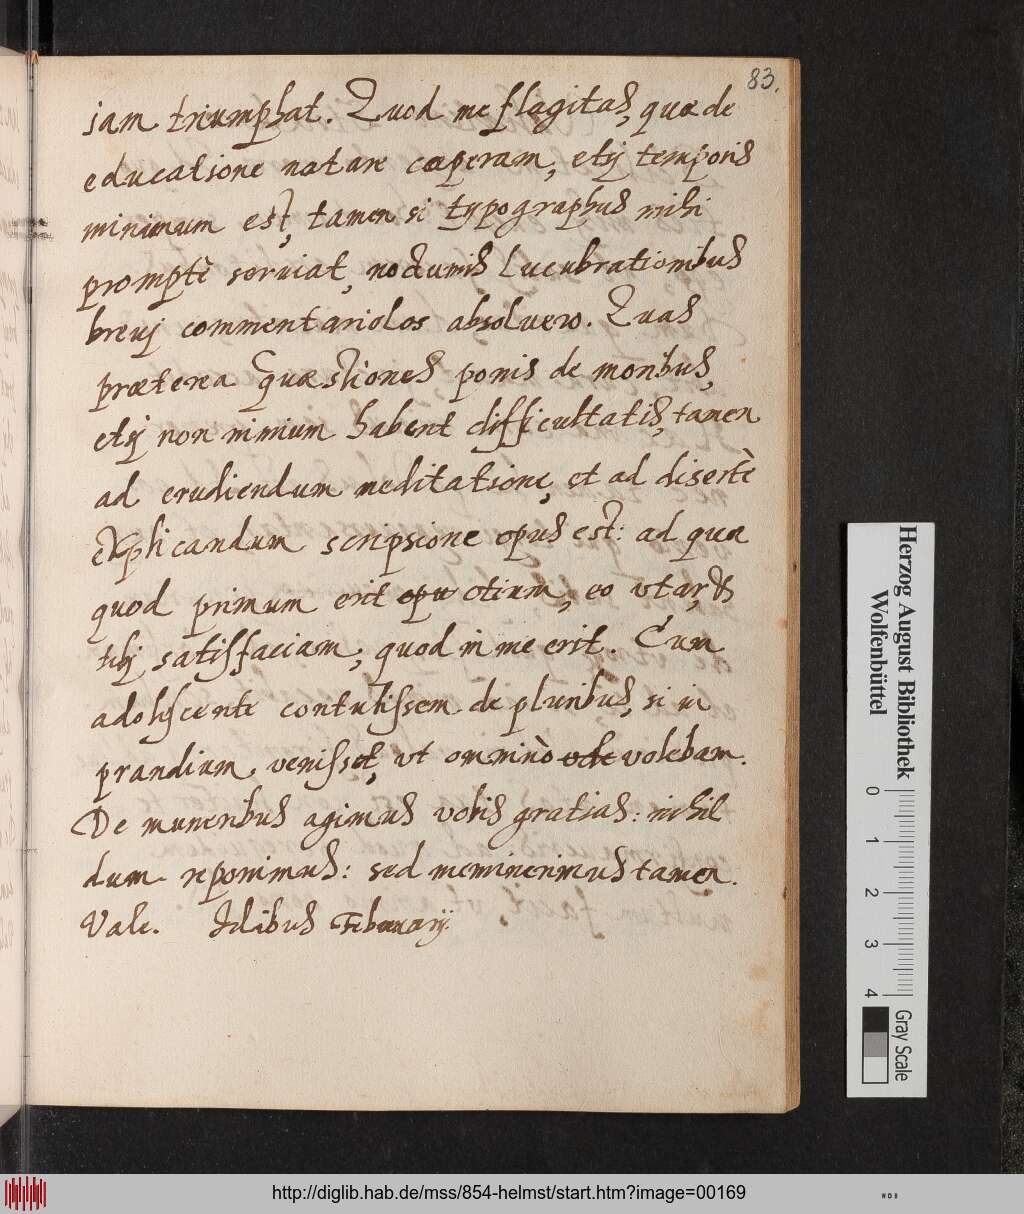 83.
iam triumphat. Quod me flagitas, quæ de
educatione notare cœperam, etsi temporis
minimum est, tamen si typographus mihi
promptè seruiat, nocturnis lucubrationibus
breui commentariolos absoluero. Quas
præterea quæstiones ponis de moribus,
etsi non nimium habent difficultatis, tamen
ad erudiendum meditatione, et ad disertè
explicandum scripsione opus est: ad quæ
quod primum erit opu otium, eo vtar, &
tibi satisfaciam, quod in me erit. Cum
adolescente contulissem de pluribus, si in
prandium venisset, vt omninò vole volebam.
De muneribus agimus vobis gratias: nihil
dum reponimus: sed meminerimus tamen.
Vale. Idibus Februarij.
Herzog August Bibliothek
Wolfenbüttel
0 1 2 3 4
Gray Scale
http://diglib.hab.de/mss/854-helmst/start.htm?image=00169